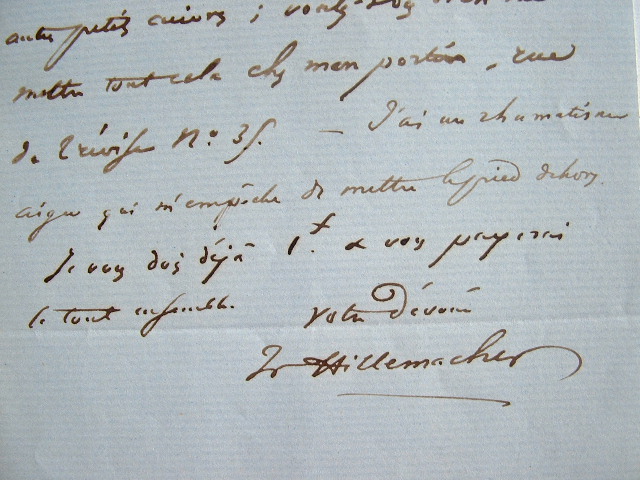 autres petits cuivres ; voulez-vous bien me
mettre tout cela chez mon portier, rue
de Trévise N° 35. — J'ai un rhumatisme
aigu qui m'empêche de mettre le pied dehors.
Je vous dois déjà 1 f. & vous payerai
le tout ensemble.
Votre dévoué
Hillemacher